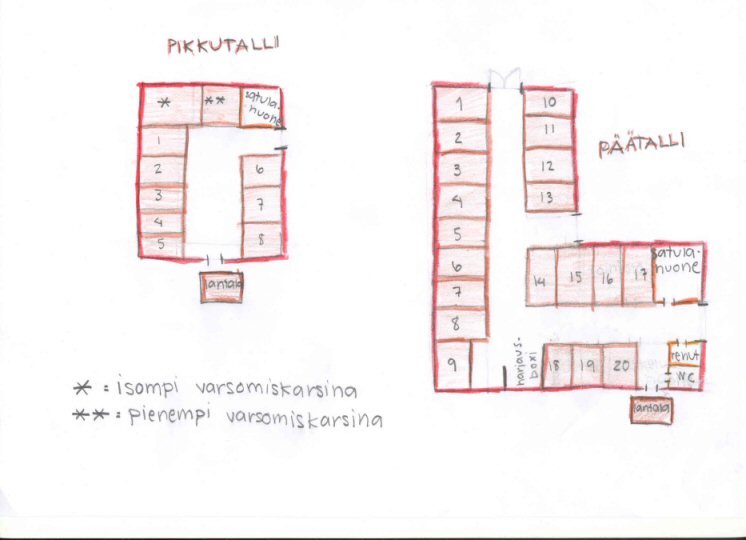 PIKKUTALLI
*
**
satula-
huone
1
2
3
4
5
6
7
8
lantala
* = isompi varsomiskarsina
** = pienempi varsomiskarsina
PÄÄTALLI
1
2
3
4
5
6
7
8
9
10
11
12
13
14
15
16
17
satula-
huone
harjaus-
boxi
18
19
20
rehut
WC
lantala